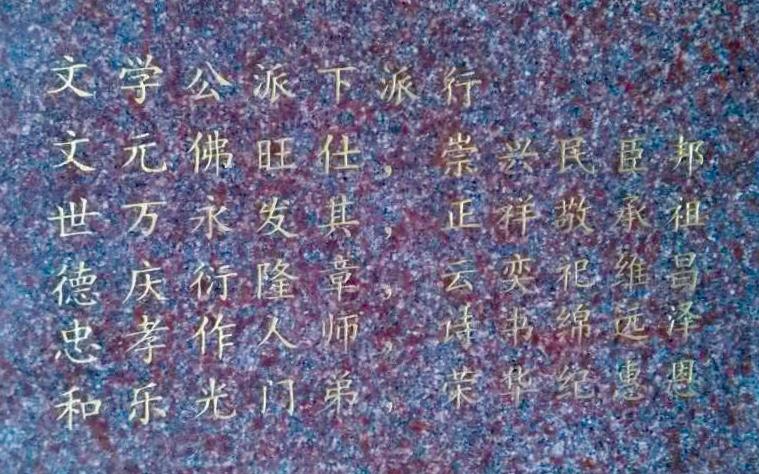 文学公派下派行
文元佛旺仕，崇兴民臣邦
世万永发其，正祥敬承祖
德庆衍隆章，云奕祀维昌
忠孝作人师，诗书绵远泽
和乐光门弟，荣华纪惠恩